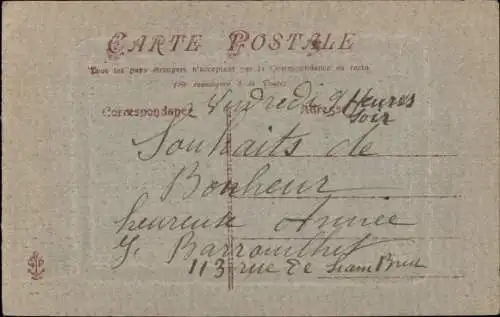 CARTE POSTALE
Tous les pays étrangers n'acceptent pas la Correspondance au recto
(Se renseigner à la Poste)
Correspondance
Adresse
Vendredi 9 Heures
Soir
Souhaits de
Bonheur
heureuse Année
113 rue